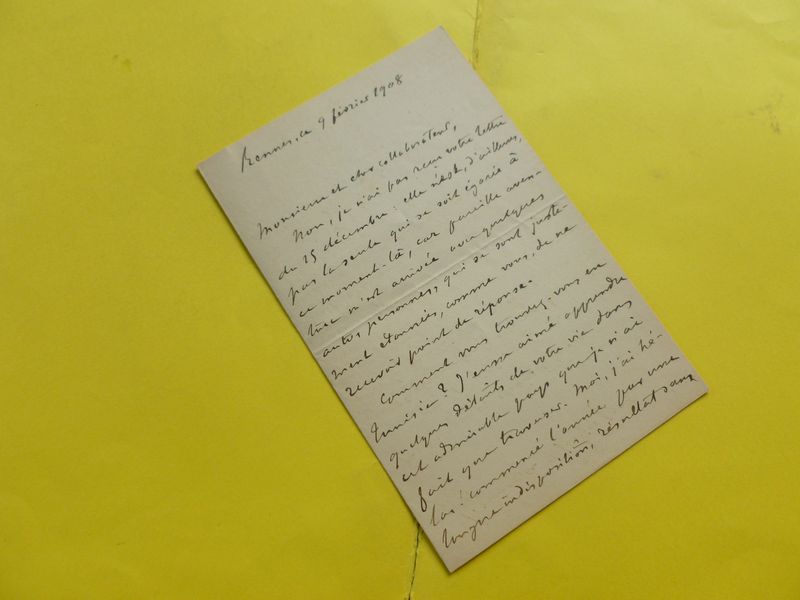 Rennes, ce 9 février 1908
Monsieur et cher collaborateur,
Non, je n'ai pas reçu votre lettre
du 15 décembre : elle n'est, d'ailleurs,
pas la seule qui se soit égarée à
ce moment-là, car pareille aven-
ture m'est arrivée avec quelques
autres personnes, qui se sont juste-
ment étonnées, comme vous, de ne
recevoir point de réponse.
Comment vous trouvez-vous en
Tunisie ? J'eusse aimé apprendre
quelques détails de votre vie dans
cet admirable pays que je n'ai
fait que traverser. Moi, j'ai hé-
las ! commencé l'année par une
longue indisposition, résultat sans